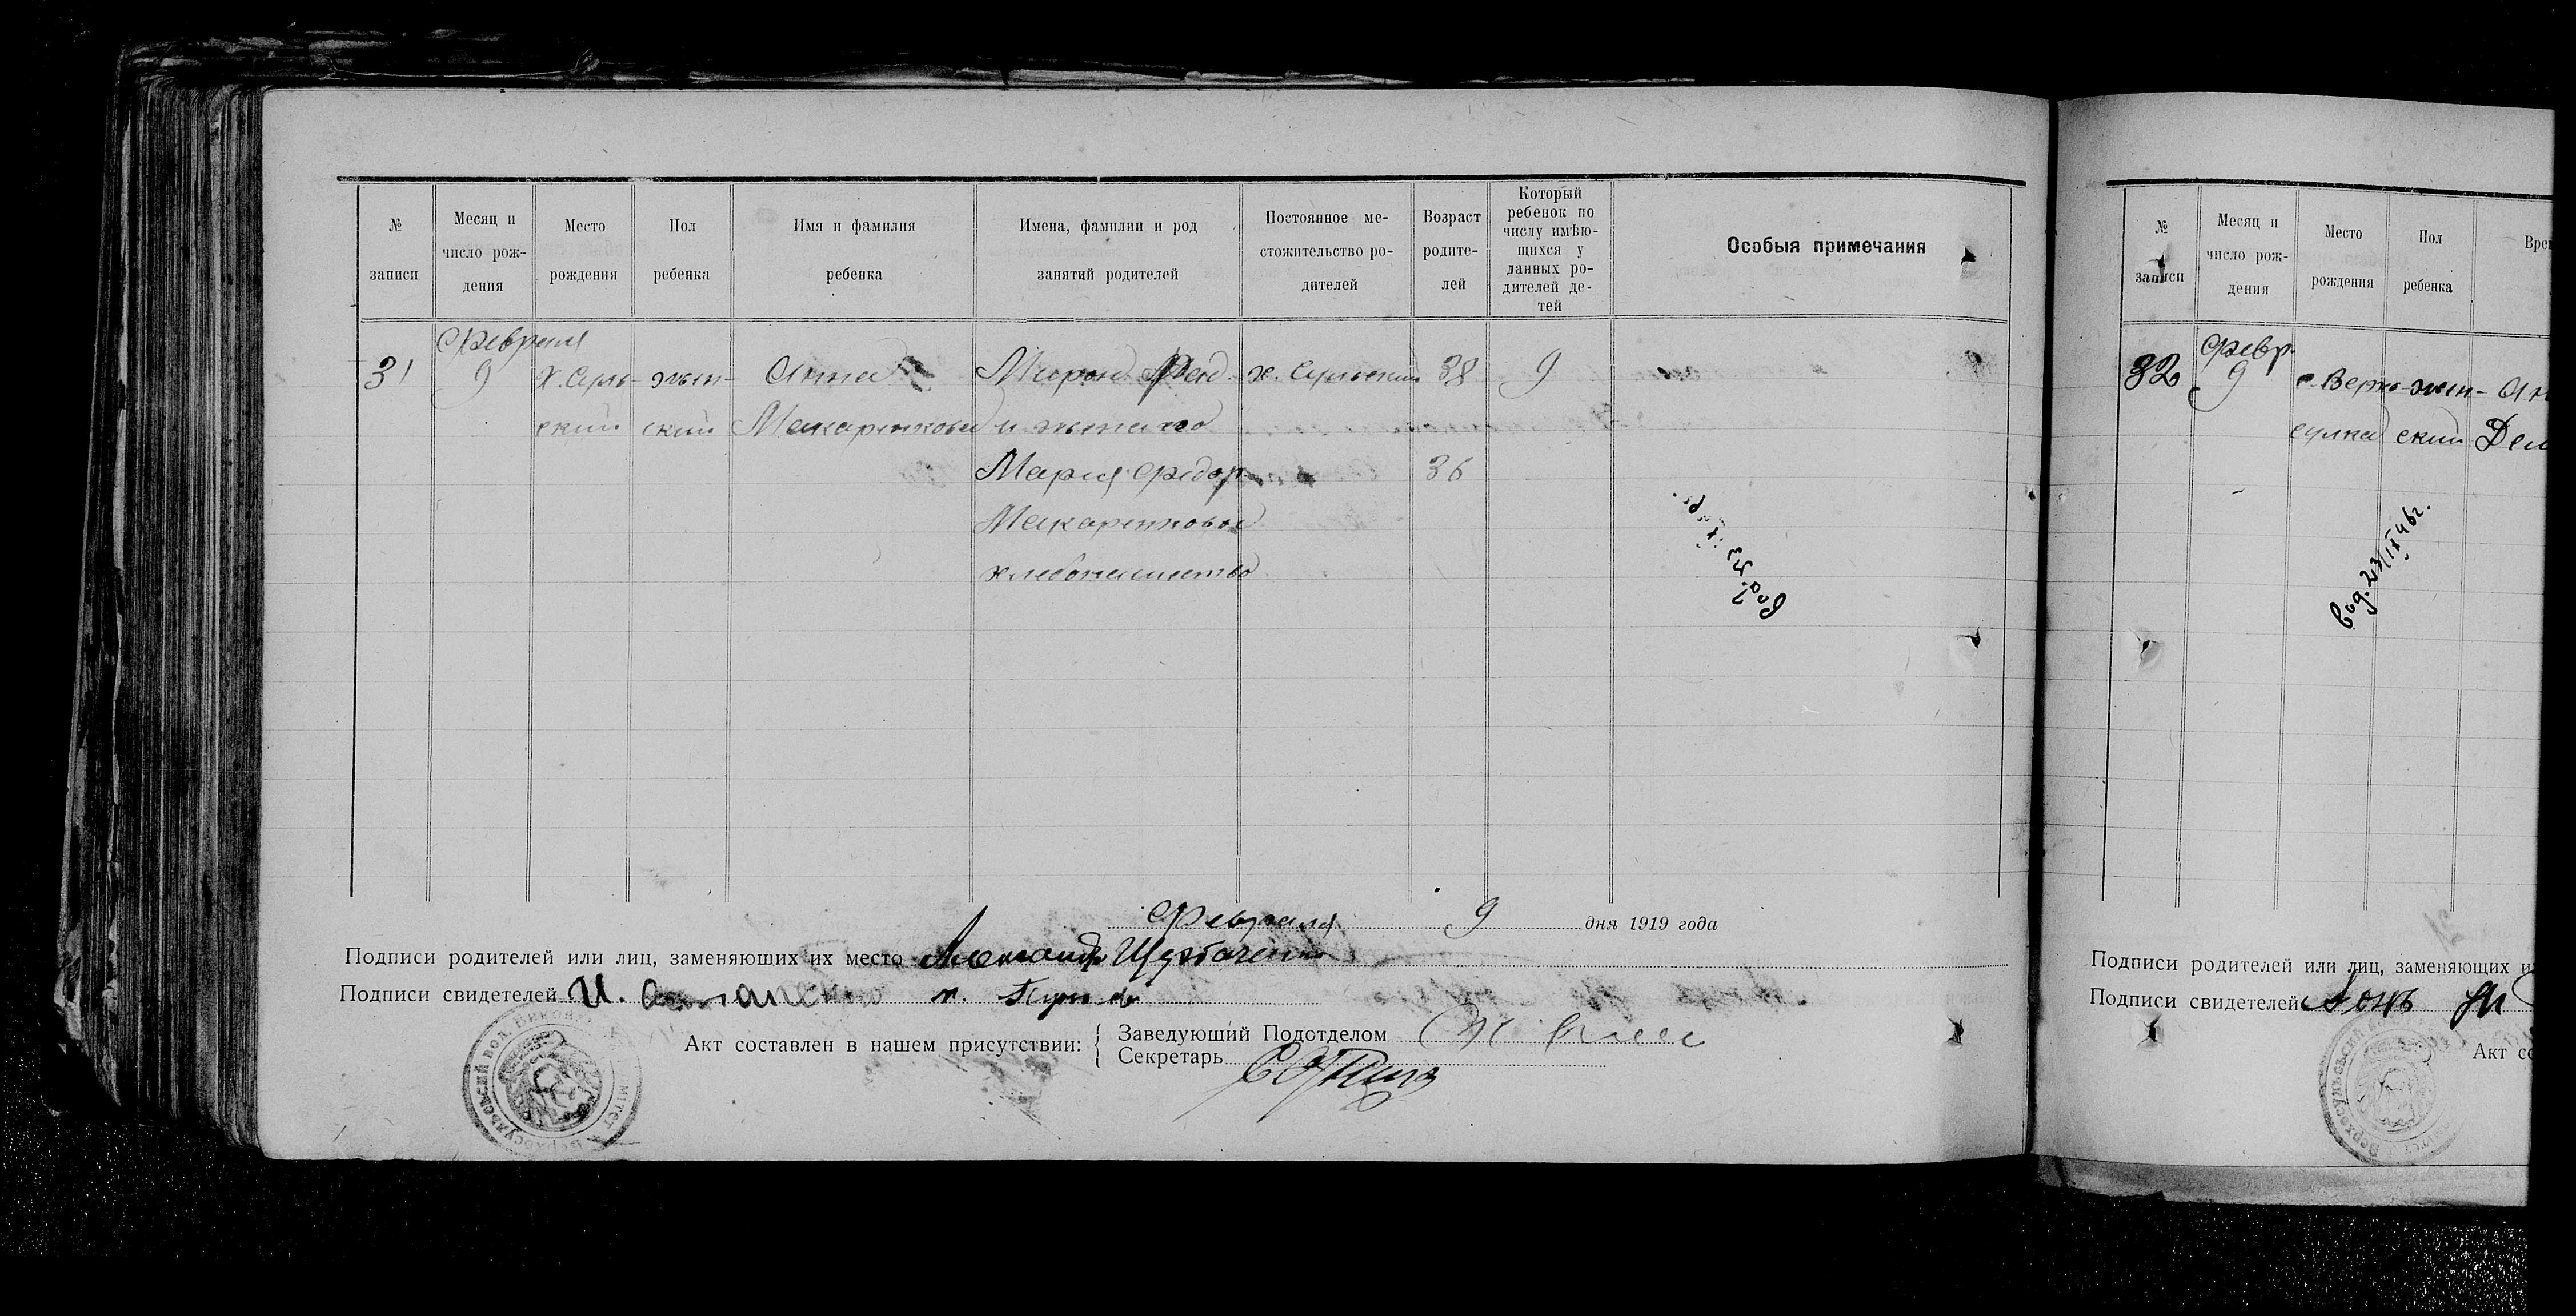 № записи
Месяц и число рож-дения
Место рождения
Пол ребенка
Имя и фамилия ребенка
Имена, фамилии и род занятий родителей
Постоянное ме-стожительство ро-дителей
Возраст родите-лей
Который ребенок по числу имѣю-щихся у данных ро-дителей де-тей
Особыя примечания
Февраля
31 9 х. Суль- жен- Анна Мирон Фед. х. Сульский 38 9
ский ский Макаренкова и жена его
Мария Федор. 36
Макаренковы
хлебопашество
Февраля 9 дня 1919 года
Подписи родителей или лиц, заменяющих их место Александр
Подписи свидетелей И.
Акт составлен в нашем присутствии: { Заведующий Подотделом
Секретарь
№ записи
Месяц и число рож-дения
Место рождения
Пол ребенка
Вре
Февр.
32 9 с. Верхо- жен- Ан
сулка ский Дем
выд. 23/IX 46г.
Подписи родителей или лиц, заменяющих и
Подписи свидетелей
Акт со